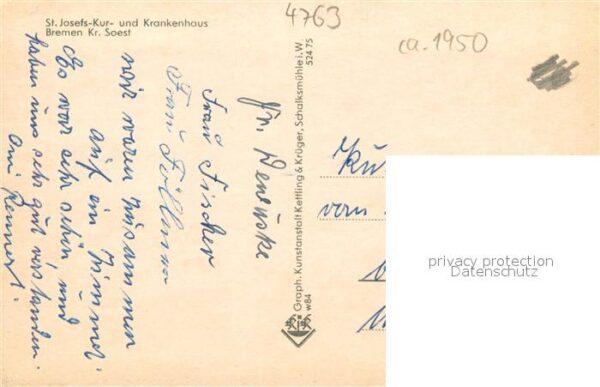 St. Josefs-Kur- und Krankenhaus
Bremen Kr. Soest
4763
ca. 1950
Fr.
Frau Fischer
Frau
wir waren zusammen
auf ein Zimmer
Es war sehr schön und
haben uns sehr gut verstanden.
Graph. Kunstanstalt Kettling & Krüger, Schalksmühle i. W.
52475
w84
privacy protection
Datenschutz